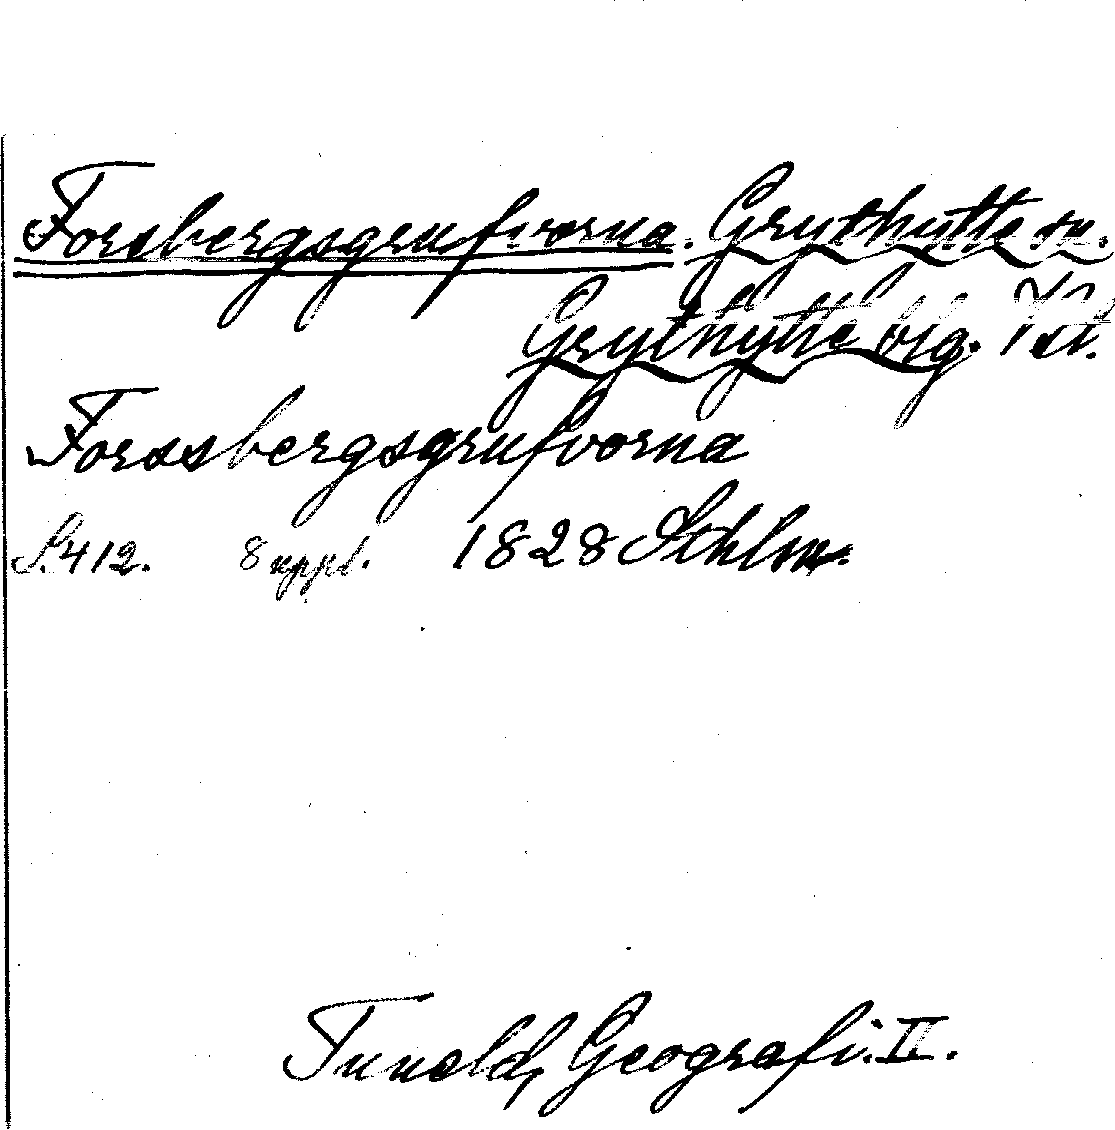 Forsbergsgrufvorna. Grythytte sn.
Grythytte bsg. Vstl.
Forssbergsgrufvorna
S. 412. 8 uppl. 1828 Sthlm.
Tuneld, Geografi. II.